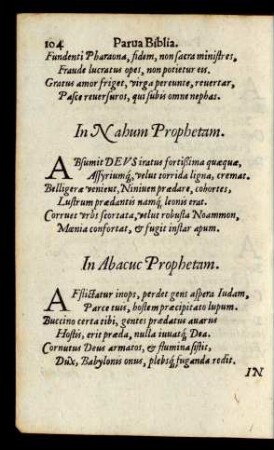 104 Parua Biblia.
Fundenti Pharaona, fidem, non sacra ministret,
Fraude lucratus opes, non potietur eis.
Gratus amor friget, virga pereunte, reuertar,
Pasce reuersuros, qui subis omne nephas.
In Nahum Prophetam.
ABsumit DEVS iratus fortissima quæquæ,
Assyriumq́, velut torrida ligna, cremat.
Belligeræ venient, Niniuen prædare, cohortes,
Lustrum prædantis namq́, leonis erat.
Corruet vrbs scortata, velut robusta Noammon,
Mœnia confortat, & fugit instar apum.
In Abacuc Prophetam.
AFflictatur inops, perdet gens aspera Iudam,
Parce tuis, hostem præcipitato lupum.
Buccino certa tibi, gentes prædatus auarus
Hostis, erit præda, nulla iuuatq́ Dea.
Cornutus Deus armatos, & flumina sistit,
Dux, Babylonis onus, plebsq́ fuganda redit.
IN